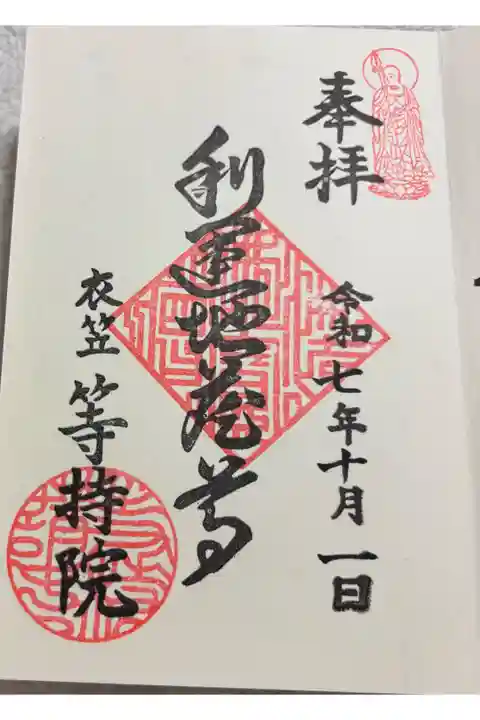 奉拝
令和七年十月一日
利運地蔵尊
衣笠 等持院